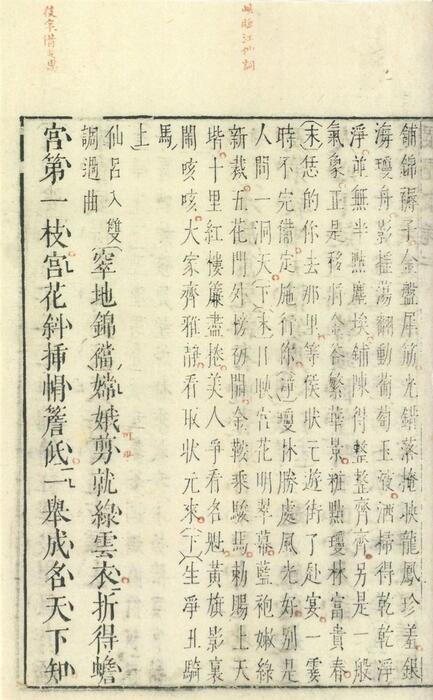 映臨江仙詞
鋪錦褥子金盤犀筯光錯落掩映龍鳳珍羞銀
海瓊舟影搖蕩翻動葡萄玉液洒掃得乾乾淨
淨並無半點塵埃鋪陳得整整齊齊另是一般
氣象正是移將金谷繁華景粧點瓊林富貴春
末恁的你去那里等候狀元遊街了赴宴一霎
時不完備定施行你諢瓊林勝處風光好別是
人間一洞天下末日映宮花明翠幕藍袍嫩綠
新裁五花門外榜初開金鞍乘駿馬勅賜上天
堦十里紅樓簾盡捲美人爭看名魁黃旗影裏
鬧咳咳大家齊雅靜看取狀元來下生淨丑騎
馬上
仙呂入雙調過曲窣地錦襠嫦娥剪就綠雲衣折得蟾
宮第一枝宮花斜插帽簷低一舉成名天下知